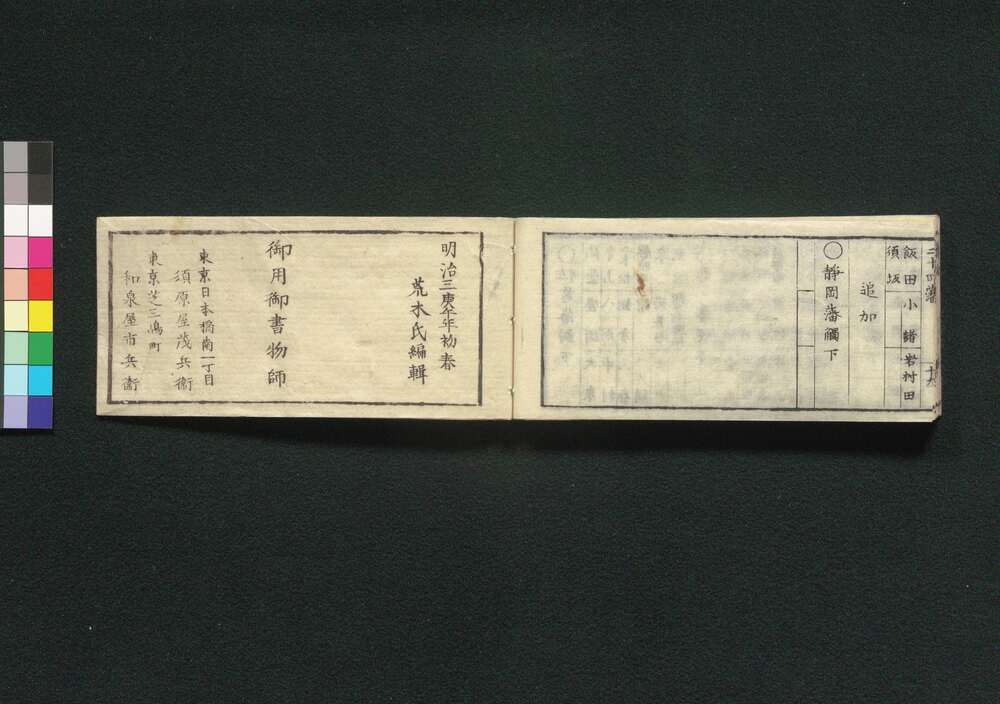 飯田 小諸 岩村田
須坂
追加
〇静岡藩觸下
明治三庚午年初春
荒木氏編輯
御用御書物師
東京日本橋南一丁目
須原屋茂兵衛
東京芝三嶋町
和泉屋市兵衛